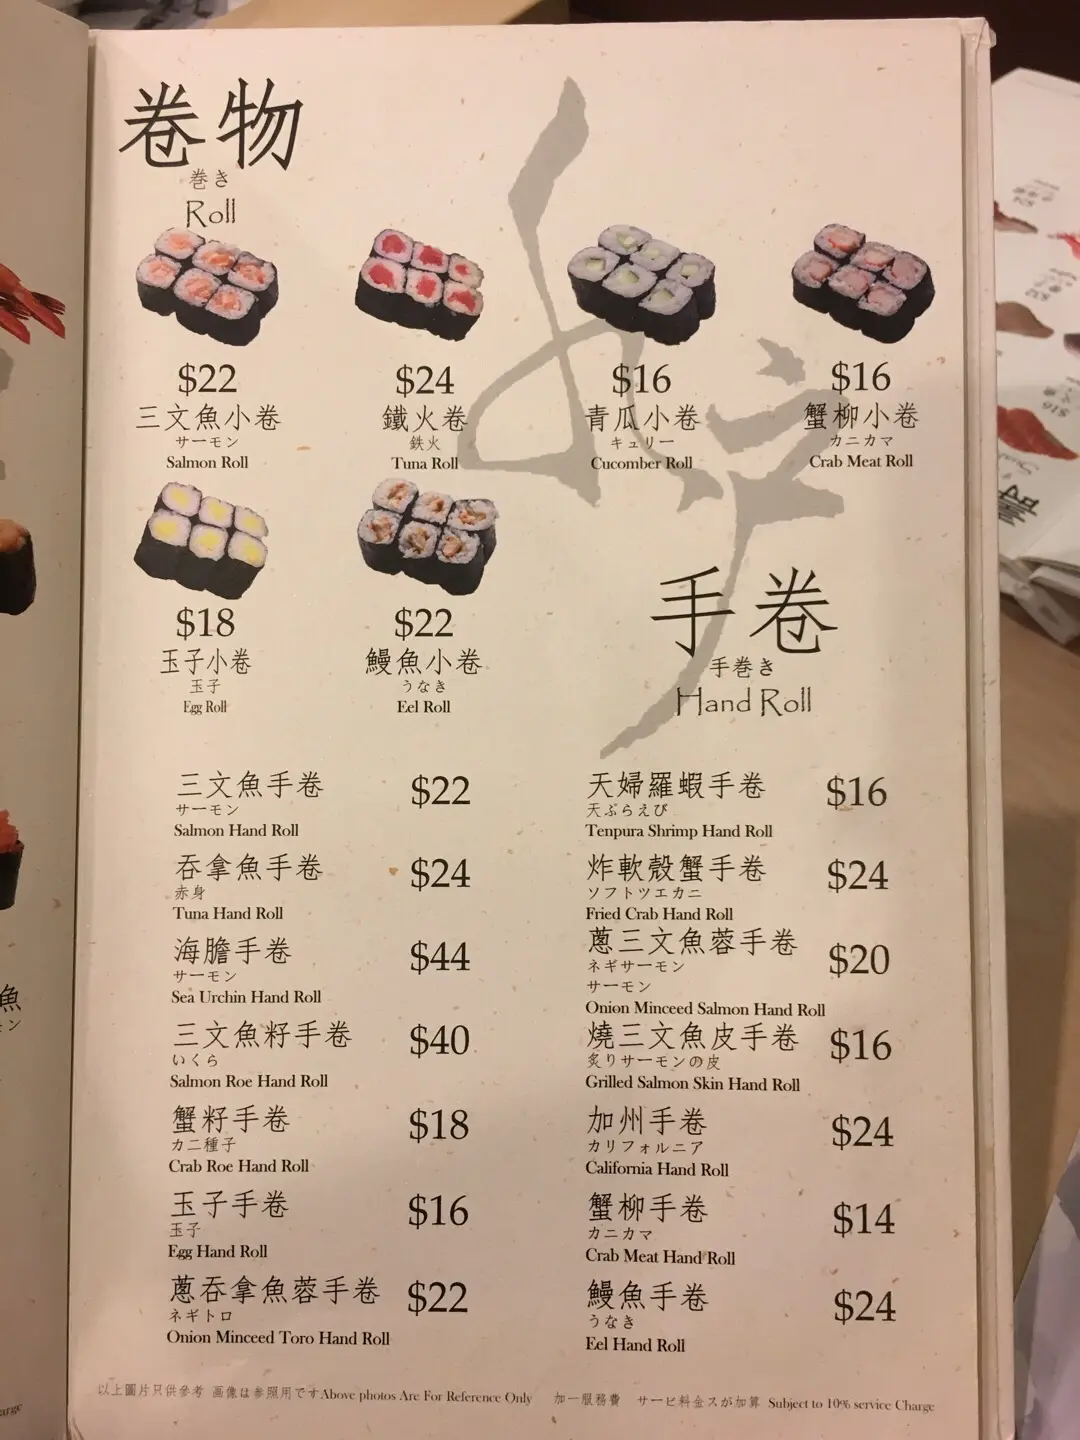 卷物
巻き
Roll
$22
三文魚小卷
サーモン
Salmon Roll
$24
鐵火卷
鉄火
Tuna Roll
$16
青瓜小卷
キュリー
Cucomber Roll
$16
蟹柳小卷
カニカマ
Crab Meat Roll
$18
玉子小卷
玉子
Egg Roll
$22
鰻魚小卷
うなき
Eel Roll
手卷
手巻き
Hand Roll
三文魚手卷 $22
サーモン
Salmon Hand Roll
吞拿魚手卷 $24
赤身
Tuna Hand Roll
海膽手卷 $44
サーモン
Sea Urchin Hand Roll
三文魚籽手卷 $40
いくら
Salmon Roe Hand Roll
蟹籽手卷 $18
カニ種子
Crab Roe Hand Roll
玉子手卷 $16
玉子
Egg Hand Roll
蔥吞拿魚蓉手卷 $22
ネギトロ
Onion Minceed Toro Hand Roll
天婦羅蝦手卷 $16
天ぶらえび
Tenpura Shrimp Hand Roll
炸軟殼蟹手卷 $24
ソフトツエカニ
Fried Crab Hand Roll
蔥三文魚蓉手卷 $20
ネギサーモン
サーモン
Onion Minceed Salmon Hand Roll
燒三文魚皮手卷 $16
炙りサーモンの皮
Grilled Salmon Skin Hand Roll
加州手卷 $24
カリフォルニア
California Hand Roll
蟹柳手卷 $14
カニカマ
Crab Meat Hand Roll
鰻魚手卷 $24
うなき
Eel Hand Roll
以上圖片只供參考 画像は参照用ですAbove photos Are For Reference Only 加一服務費 サービ料金スが加算 Subject to 10% service Charge
魚